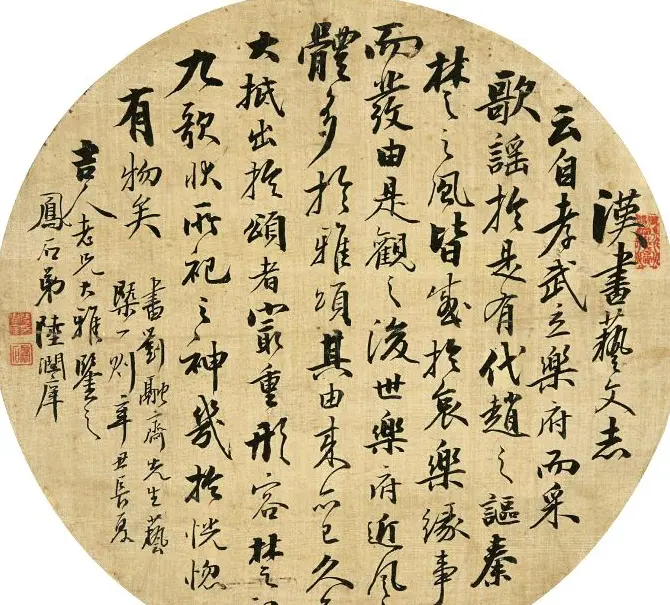 漢書藝文志
云自孝武立樂府而采
歌謠於是有代趙之謳秦
楚之風皆感於哀樂緣事
而發由是觀之後世樂府近風
體多於雅頌其由來亦已久
大抵出於頌者最重形容楚
九歌狀所祀之神幾於恍惚
有物矣
書劉融齋先生藝
槩一則辛丑長夏
吉人老兄大雅鑒之
鳳石弟陸潤庠